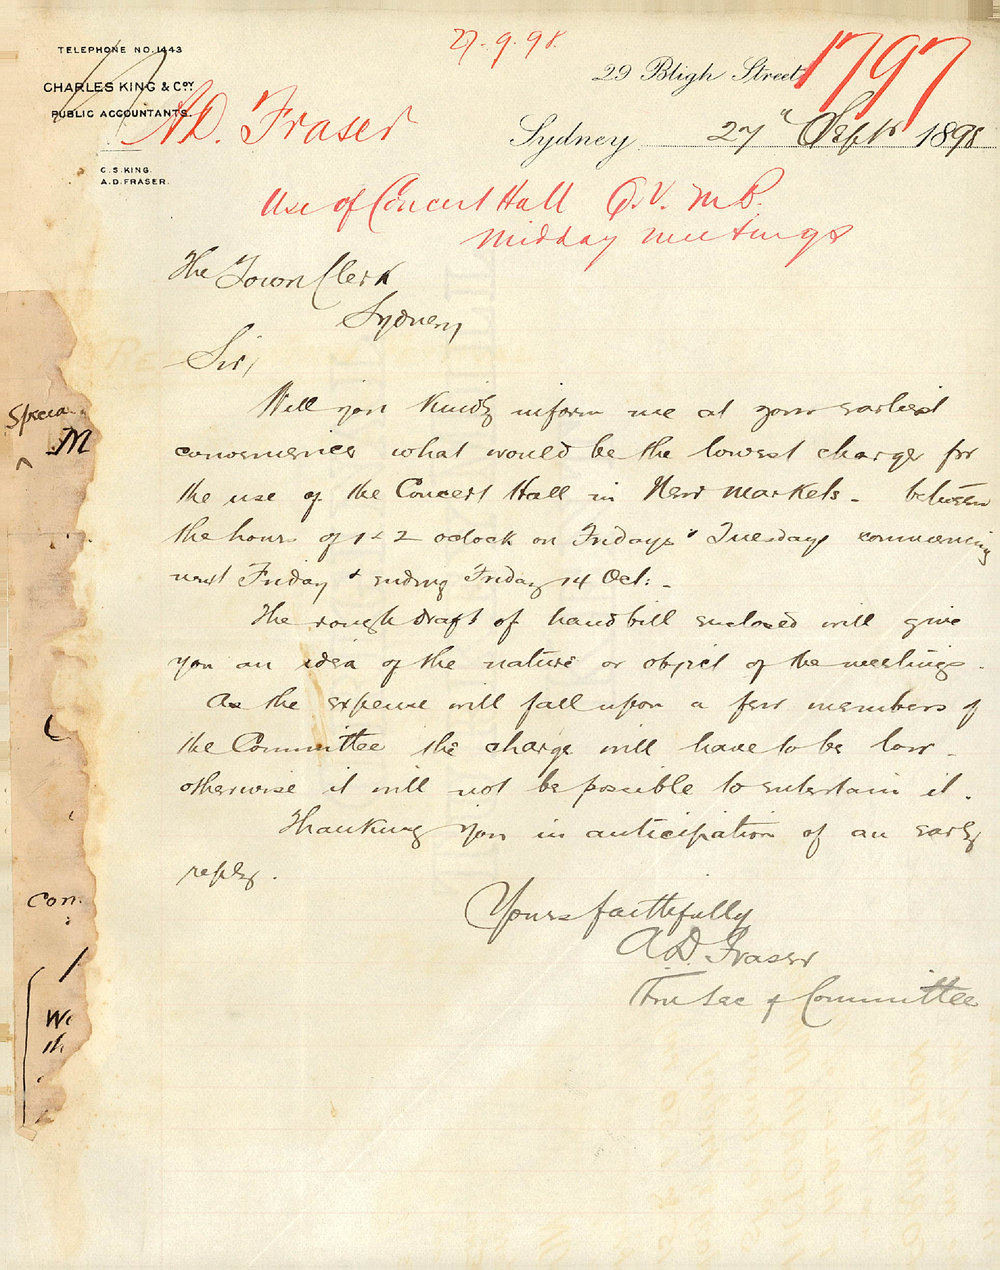 27.9.98.
TELEPHONE NO. 1443
CHARLES KING & COY
PUBLIC ACCOUNTANTS.
C.S. KING.
A.D. FRASER.
29 Bligh Street
1797
A.D. Fraser
Sydney 27th Sept 1898
Use of Concert Hall Q.V. M B.
midday meetings
The Town Clerk
Sydney
Sir,
Will you kindly inform me at your earliest
convenience what would be the lowest charge for
the use of the Concert Hall in New Markets - between
the hours of 1 & 2 oclock on Fridays & Tuesdays commencing
next Friday & ending Friday 14 Oct: -
The rough draft of handbill enclosed will give
you an idea of the nature or object of the meetings.
As the expense will fall upon a few members of
the Committee the charge will have to be low -
otherwise it will not be possible to entertain it.
Thanking you in anticipation of an early
reply.
Yours faithfully
A.D. Fraser
Sec of Committee
M
Com
We
th